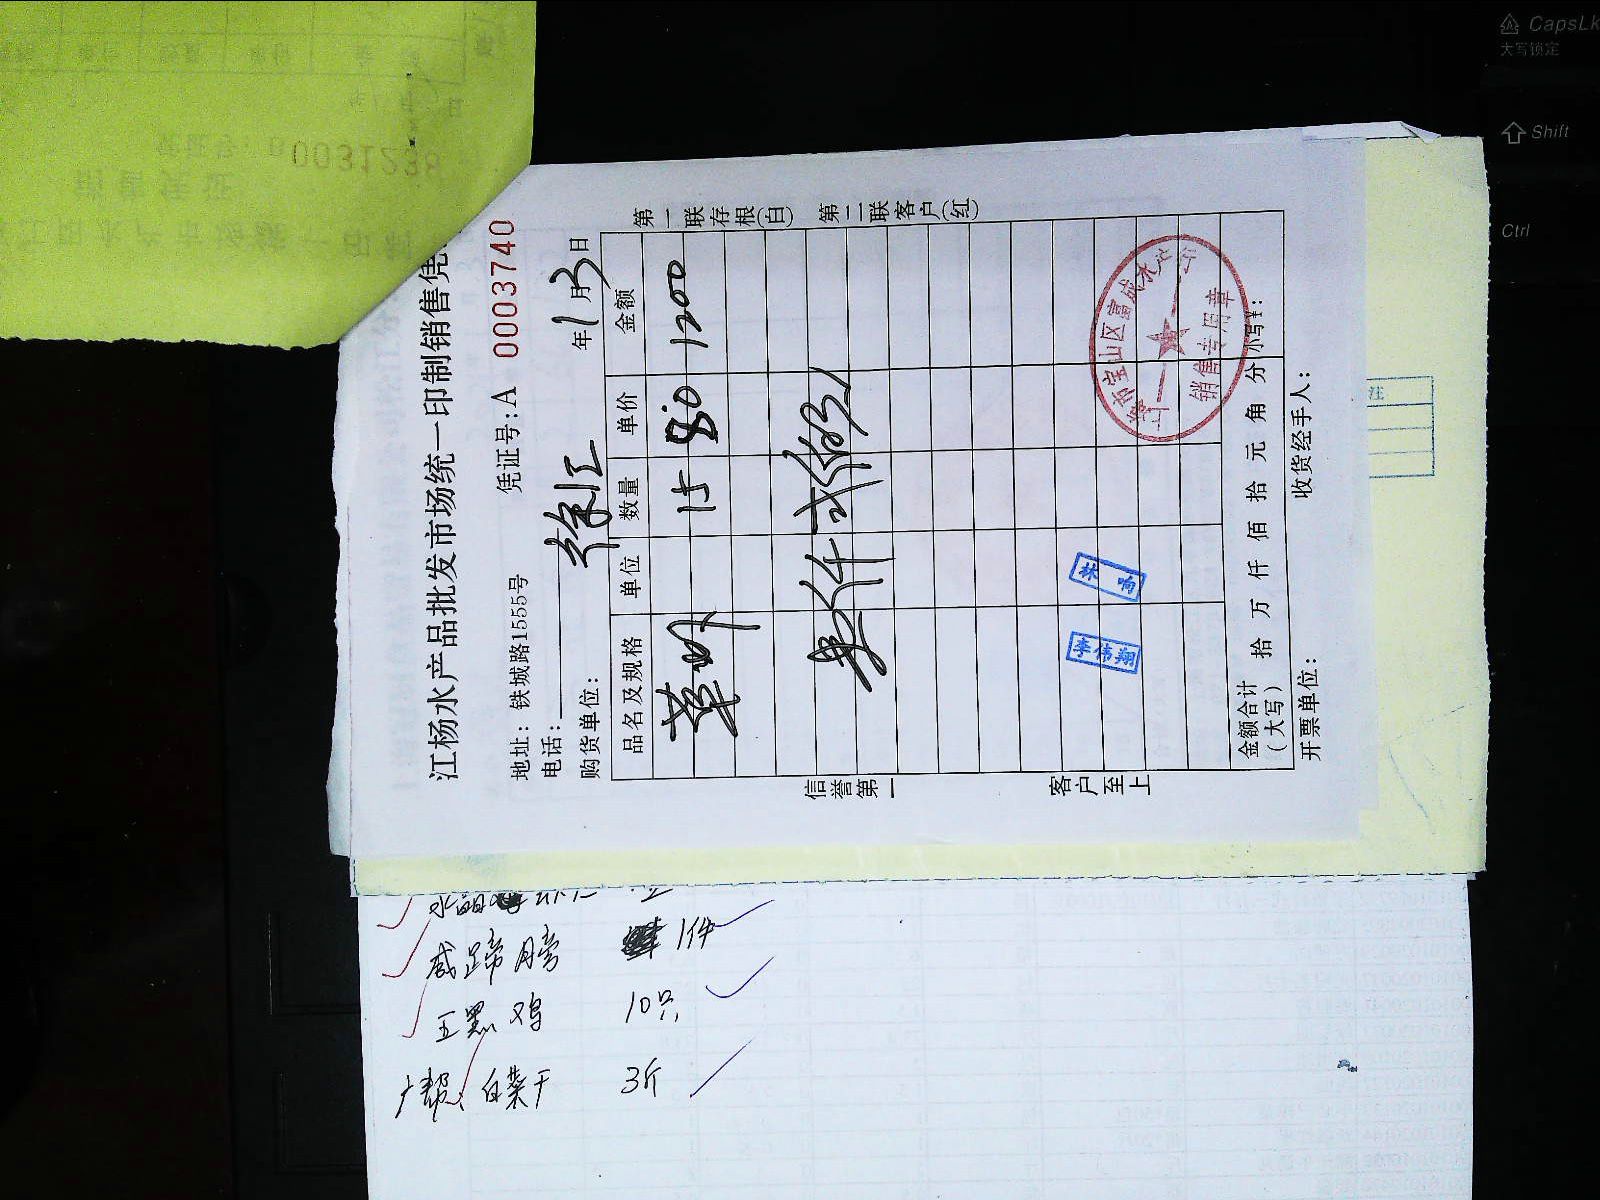 江杨水产品批发市场统一印制销售凭
地址：铁城路1555号 凭证号：A 0003740
电话：
购货单位： 徐汇 年1月3日
品名及规格 单位 数量 单价 金额
草虾 15 80 1200
壹仟弍佰
第一联存根(白) 第二联客户(红)
信誉第一 客户至上
李伟翔
林响
上海市宝山区富成水产行
销售专用章
金额合计（大写） 拾 万 仟 佰 拾 元 角 分 小写¥：
开票单位： 收货经手人：
0031238
咸蹄膀 1件
王黑鸡 10只
白菜干 3斤
CapsLk
大写锁定
Shift
Ctrl